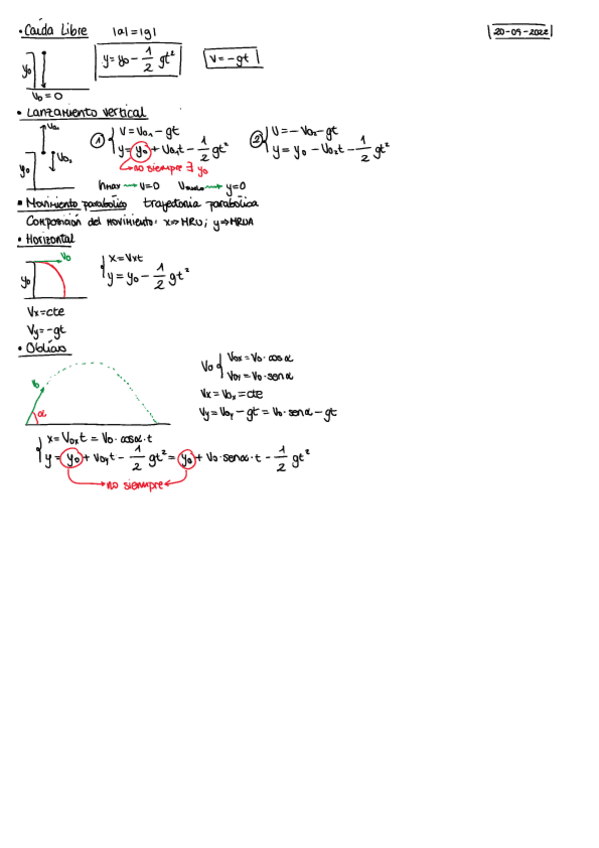 • Caída Libre |a|=|g| |20-09-2022|
y = y₀ - 1/2 gt² v = -gt
y₀
v₀ = 0
• Lanzamiento vertical
① { v = v₀₁ - gt ② { v = - v₀₂ - gt
y = y₀ + v₀₁t - 1/2 gt² y = y₀ - v₀₂t - 1/2 gt²
v₀₁
v₀₂
y₀
no siempre ∃ y₀
hmax → v=0 vsuelo → y=0
• Movimiento parabólico trayectoria parabólica
Composición del movimiento: x ⇒ MRU; y ⇒ MRUA
• Horizontal
v₀
y₀
{ x = vxt
y = y₀ - 1/2 gt²
Vx = cte
Vy = -gt
• Oblicuo
v₀
α
V₀ { V₀x = V₀ · cos α
V₀y = V₀ · sen α
Vx = V₀x = cte
Vy = V₀y - gt = V₀ · sen α - gt
{ x = V₀xt = V₀ · cos α · t
y = y₀ + V₀yt - 1/2 gt² = y₀ + V₀ · sen α · t - 1/2 gt²
no siempre